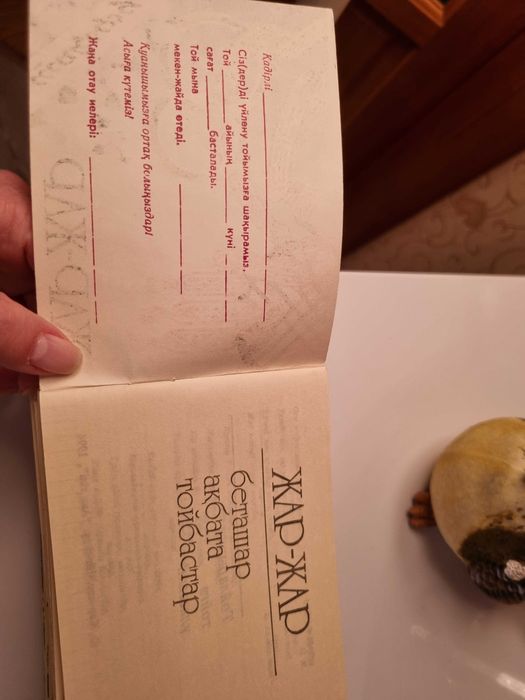 Қадірлі ____________
Сіз(дер)ді үйлену тойымызға шақырамыз.
Той ______ айының ______ күні ______
сағат ______ басталады.
Той мына ____________
мекен-жайда өтеді.
Қуанышымызға ортақ болыңыздар!
Асыға күтеміз!
Жаңа отау иелері: ____________
ЖАР-ЖАР
беташар
ақбата
тойбастар